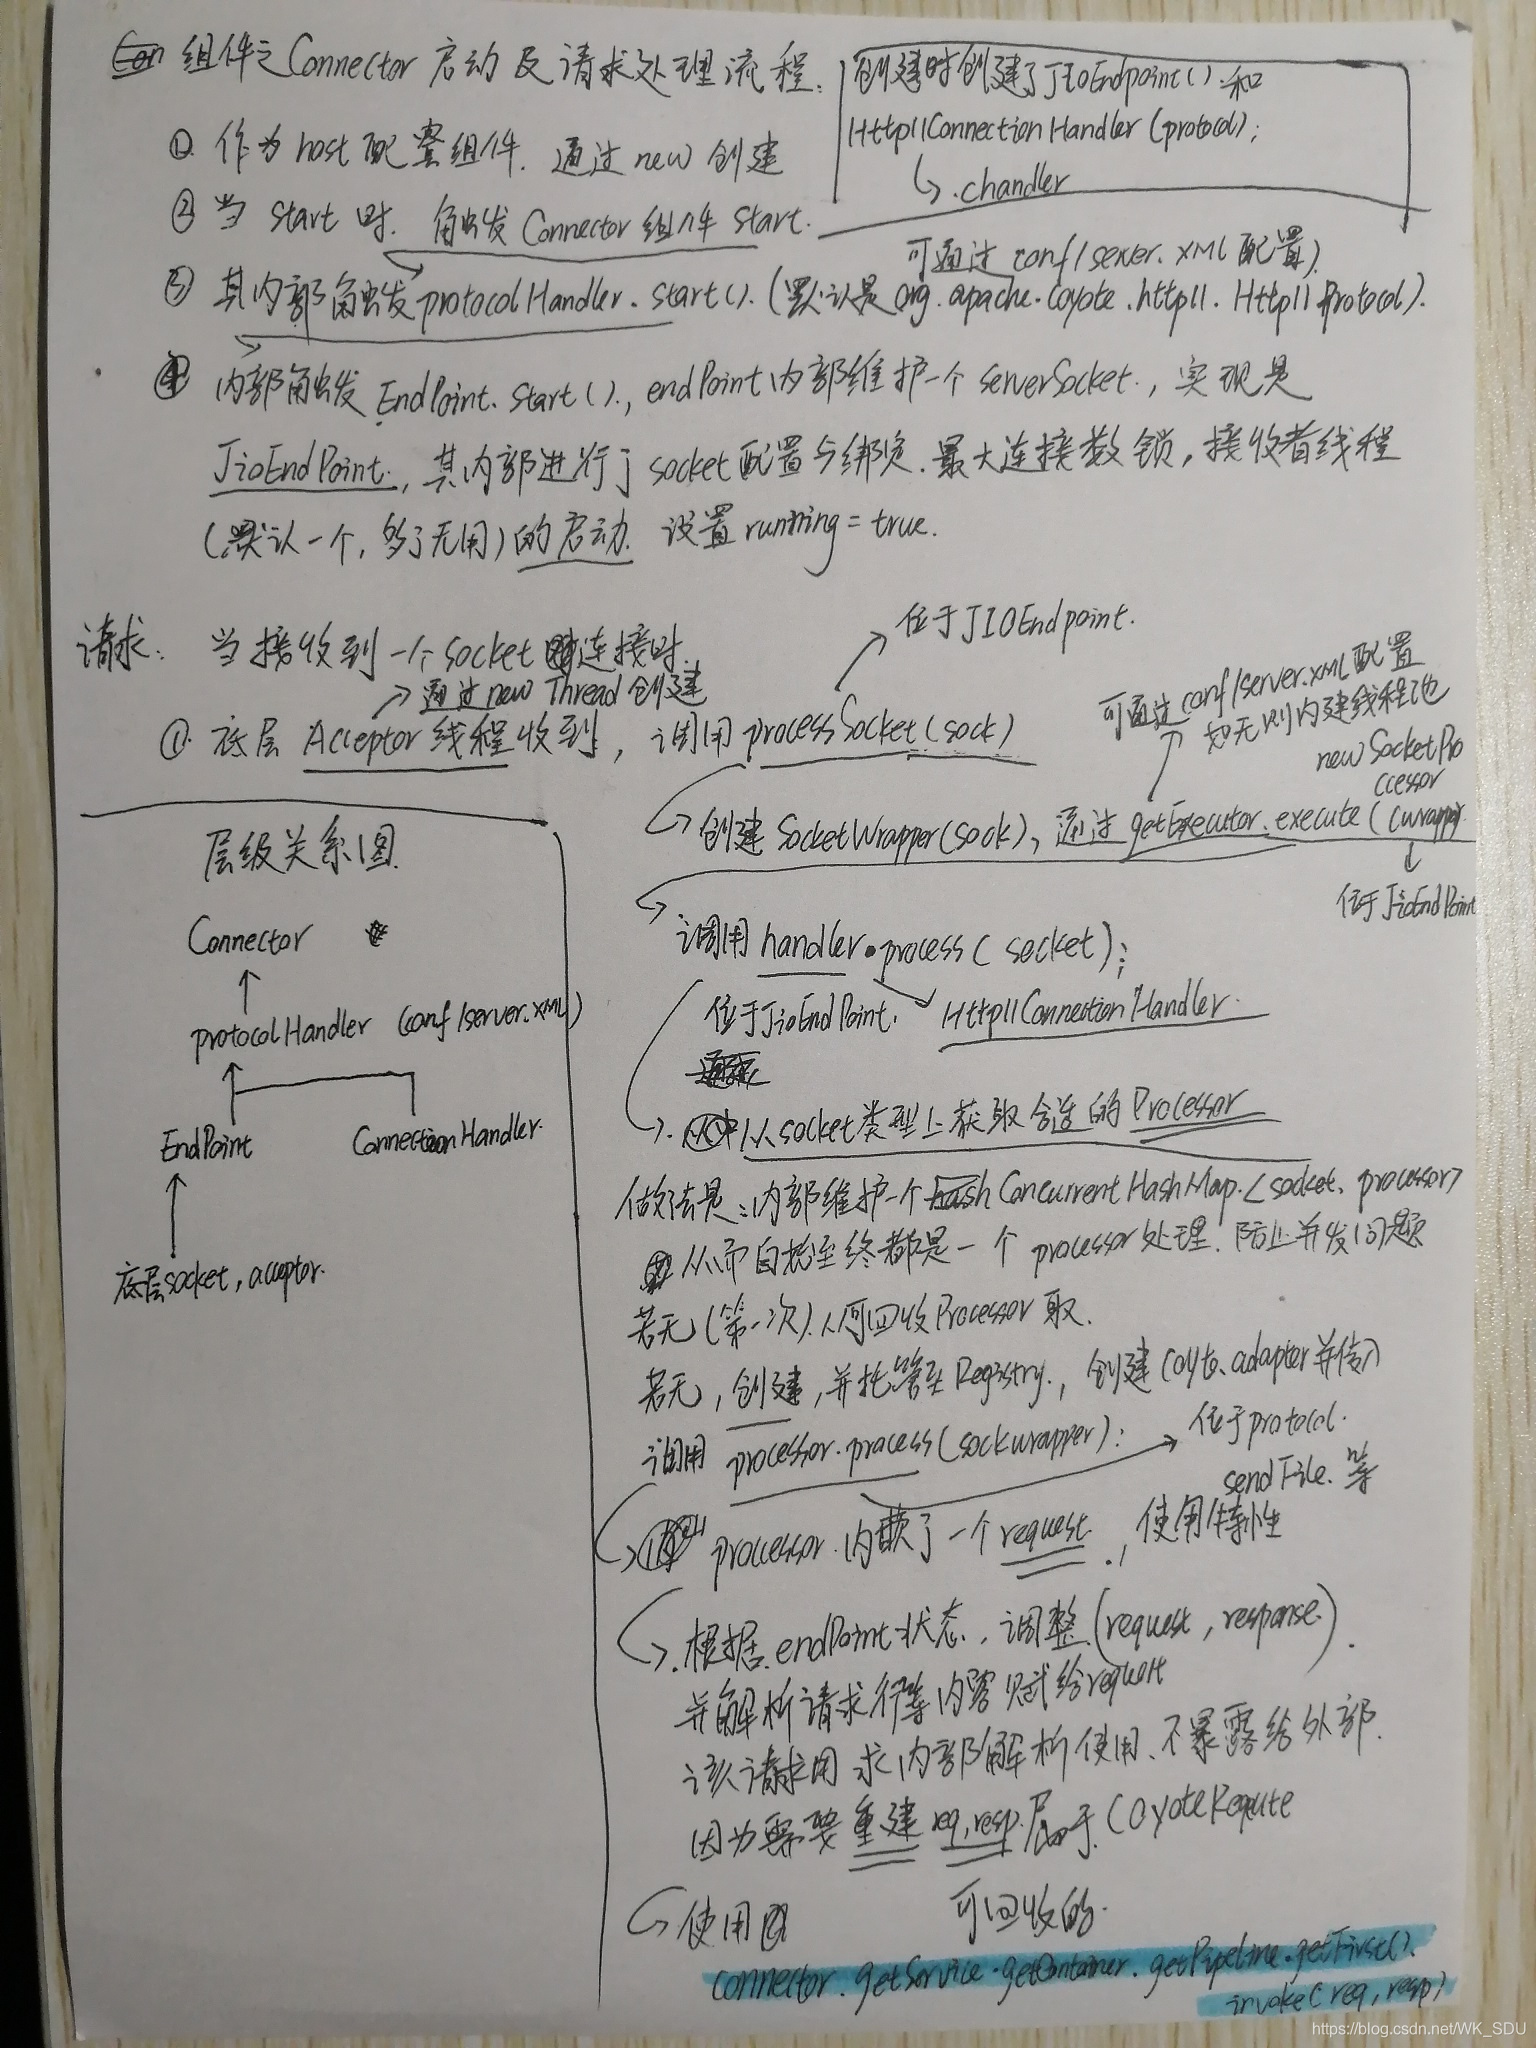 组件之Connector 启动及请求处理流程.
创建时创建了JIoEndpoint()和
Http11ConnectionHandler(protocol);
chandler
① 作为host配套组件. 通过new创建
② 当start时. 触发Connector组件start.
可通过conf/server.XML配置)
③ 其内部触发protocolHandler.start().(默认是org.apache.coyote.http11.Http11Protocol).
④ 内部触发EndPoint.start()., endPoint内部维护一个serverSocket., 实现是
JioEndPoint., 其内部进行了socket配置与绑定.最大连接数锁,接收者线程
(默认一个,多了无用)的启动. 设置running=true.
位于JIOEndpoint.
请求: 当接收到一个socket连接时.
通过new Thread创建
① 底层Acceptor线程收到, 调用processSocket(sock)
可通过conf/server.xML配置
如无则内建线程池
new SocketPro
ccessor
创建SocketWrapper(sock), 通过getExecutor.execute(
位于JioEndPoint
调用handler.process(socket);
位于JioEndPoint. Http11ConnectionHandler.
从socket类型上获取合适的Processor
做法是:内部维护一个ConcurrentHashMap.<socket、processor>
从而自始至终都是一个processor处理. 防止并发问题
若无(第一次).从可回收Processor取.
若无,创建,并托管至Registry., 创建Coyto.adapter并传入
调用processor.process(sockwrapper);
位于protocol.
processor.内嵌了一个request., 使用特性
sendFile.等
根据.endPoint状态.,调整(request,response).
并解析请求行等内容赋给request
该请求用求内部解析使用、不暴露给外部.
因为需要重建req,resp.属于CoyoteRequte
使用
可回收的.
connector.getService.getContainer.getPipeline.getFirst().
invoke(req,resp)
层级关系图
Connector
protocolHandler (conf/server.xML)
EndPoint ConnectionHandler.
底层socket,acceptor.
https://blog.csdn.net/WK_SDU